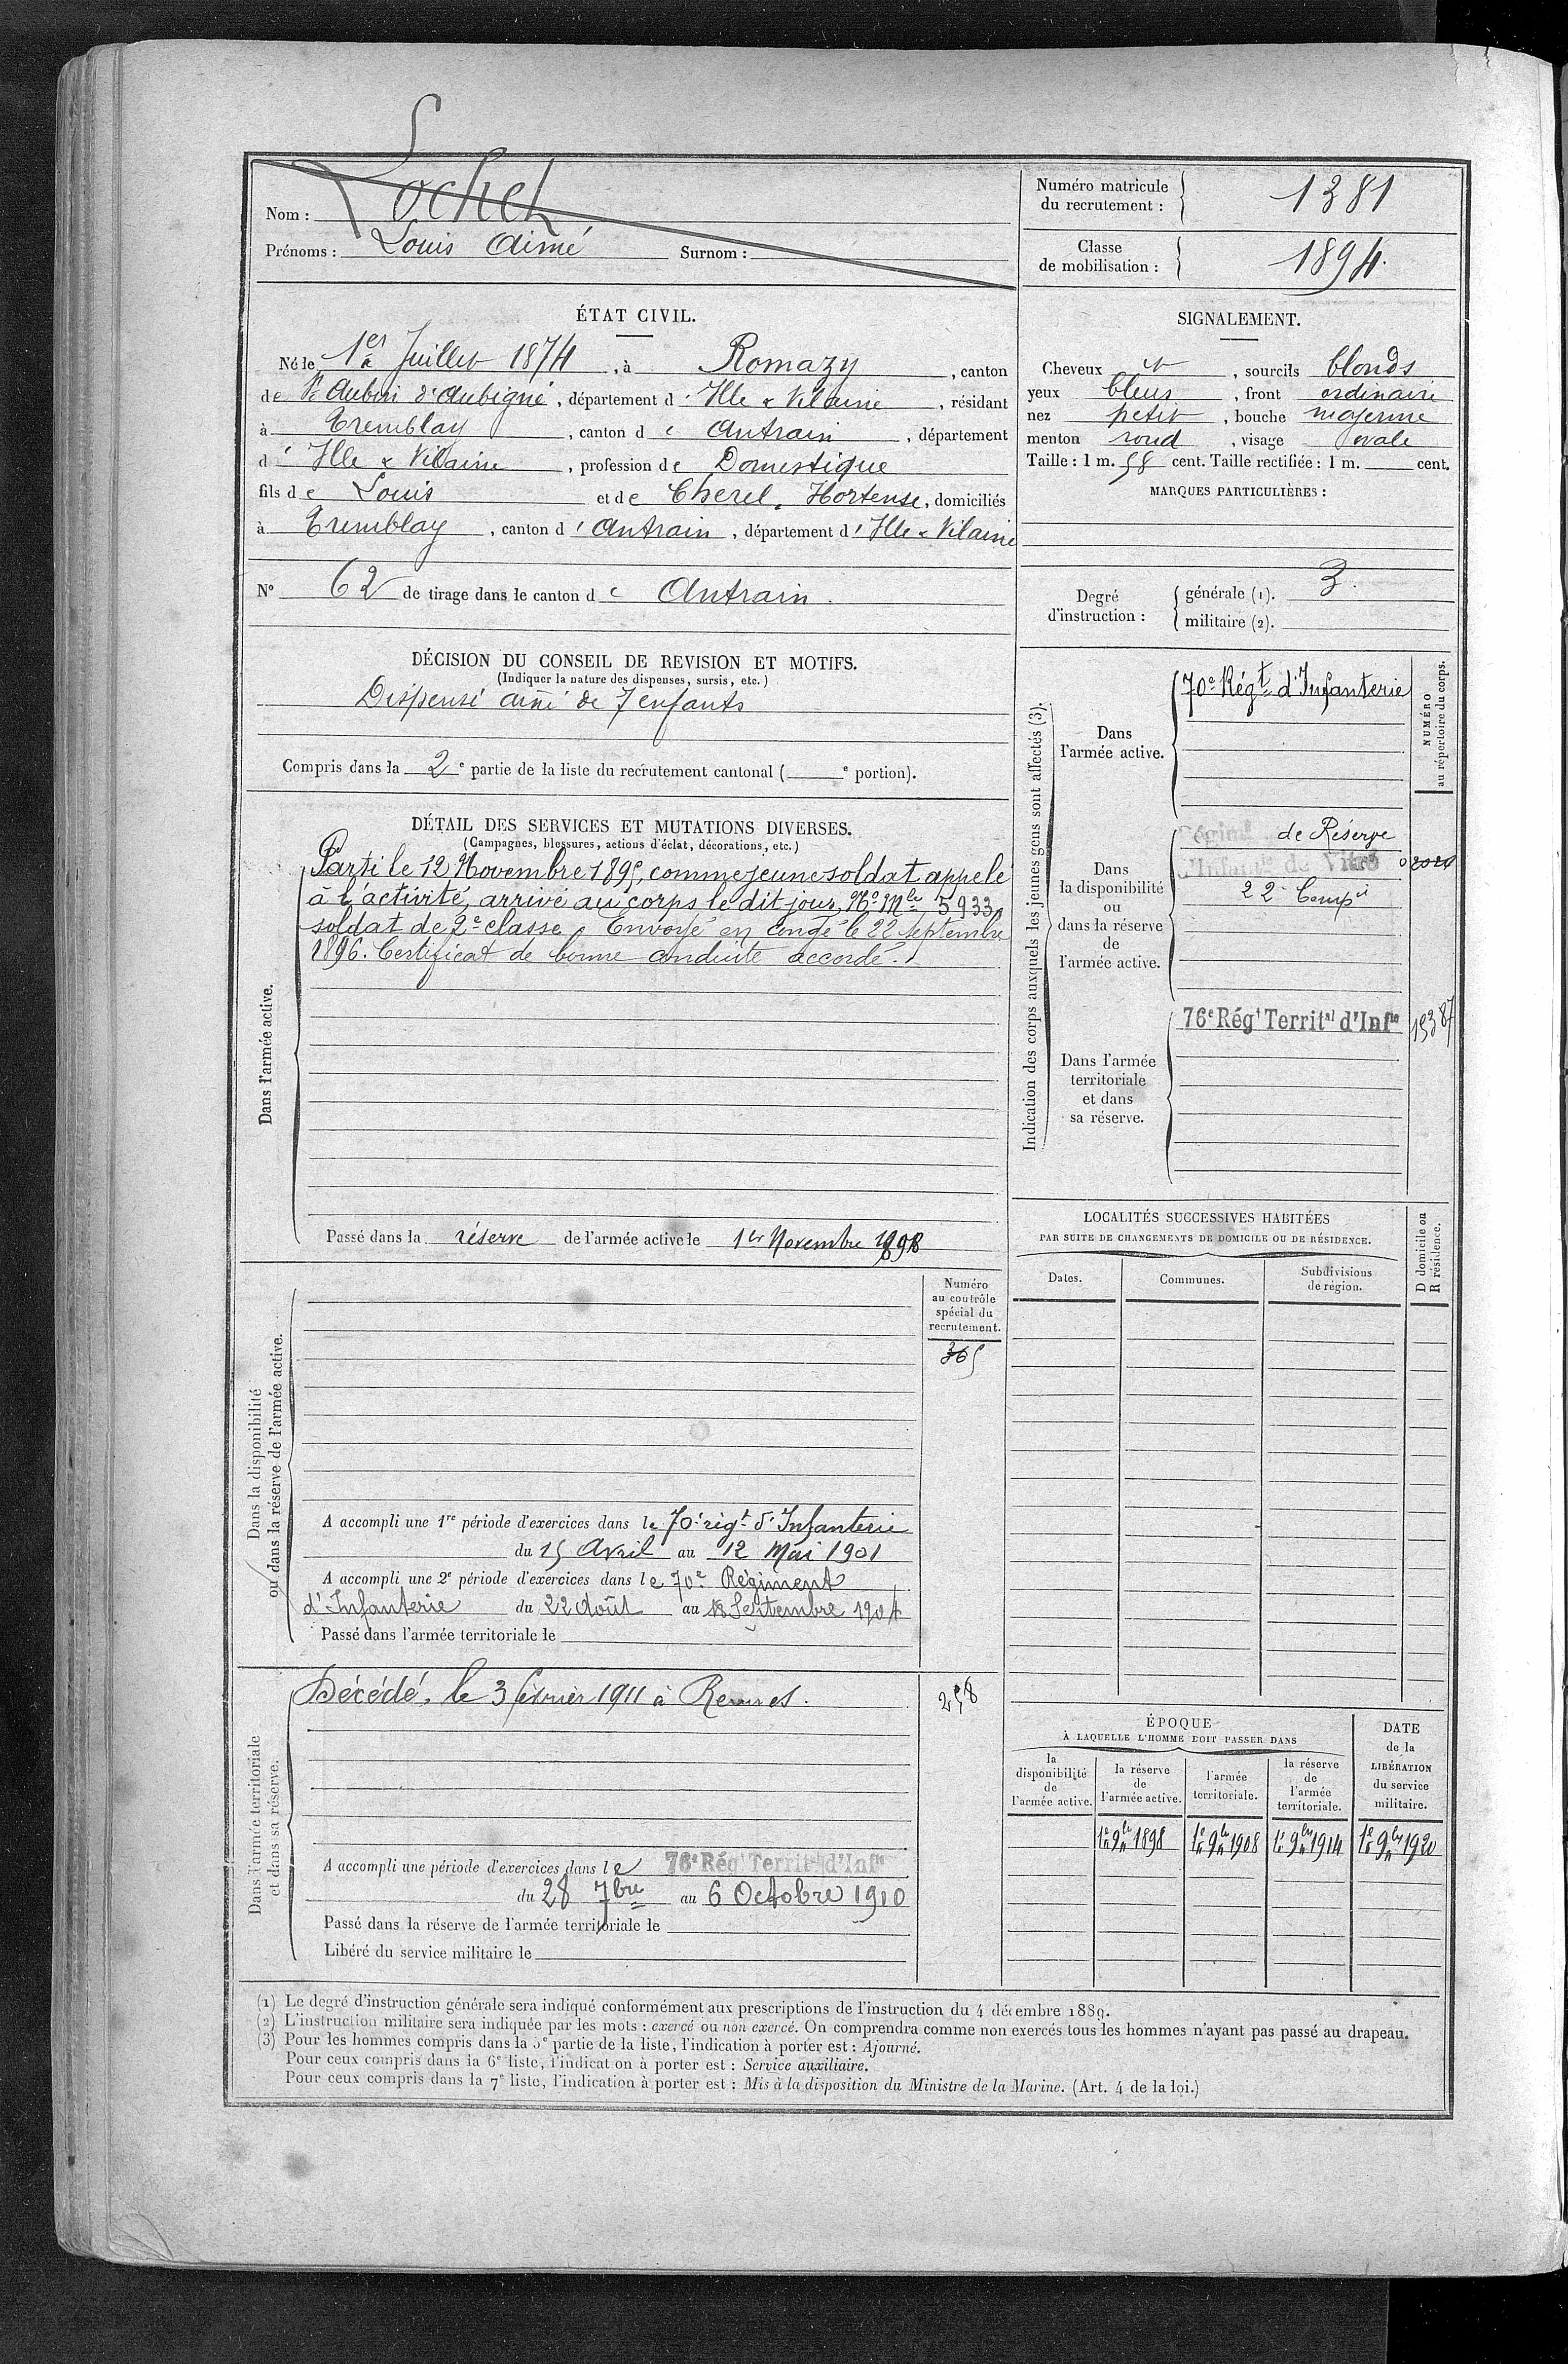 Nom : Lochet
Prénoms : Louis Aimé Surnom :
Numéro matricule du recrutement : 1381
Classe de mobilisation : 1894.
ÉTAT CIVIL.
Né le 1er Juillet 1874, à Romazy, canton
de St Aubin d'Aubigné, département d'Ille & Vilaine, résidant
à Tremblay, canton d'Antrain, département
d'Ille & Vilaine, profession de Domestique
fils de Louis et de Cherel, Hortense, domiciliés
à Tremblay, canton d'Antrain, département d'Ille & Vilaine
N° 62 de tirage dans le canton d' Antrain.
SIGNALEMENT.
Cheveux et, sourcils blonds
yeux bleus, front ordinaire
nez petit, bouche moyenne
menton rond, visage ovale
Taille : 1 m. 58 cent. Taille rectifiée : 1 m. cent.
MARQUES PARTICULIÈRES :
Degré d'instruction :
générale (1). 3.
militaire (2).
DÉCISION DU CONSEIL DE REVISION ET MOTIFS.
(Indiquer la nature des dispenses, sursis, etc.)
Dispensé aîné de 7 enfants
Compris dans la 2e partie de la liste du recrutement cantonal ( e portion).
DÉTAIL DES SERVICES ET MUTATIONS DIVERSES.
(Campagnes, blessures, actions d'éclat, décorations, etc.)
Dans l'armée active.
Parti le 12 Novembre 1895, comme jeune soldat appelé
à l'activité, arrivé au corps le dit jour, No Mle 5933,
soldat de 2e classe. Envoyé en congé le 22 Septembre
1896. Certificat de bonne conduite accordé.
Passé dans la réserve de l'armée active le 1er Novembre 1898
Indication des corps auxquels les jeunes gens sont affectés (3).
NUMÉRO au répertoire du corps.
Dans l'armée active.
70e Régt d'Infanterie
Dans la disponibilité ou dans la réserve de l'armée active.
Régimt de Réserve
d'Infantie de Vitré
22e Compie
Dans l'armée territoriale et dans sa réserve.
76e Régt Territal d'Infie 15387
LOCALITÉS SUCCESSIVES HABITÉES
PAR SUITE DE CHANGEMENTS DE DOMICILE OU DE RÉSIDENCE.
Dates. Communes. Subdivisions de région. D domicile ou R résidence.
Dans la disponibilité
ou dans la réserve de l'armée active.
Numéro
au contrôle
spécial du
recrutement.
365
A accompli une 1re période d'exercices dans le 70e régt d'Infanterie
du 15 Avril au 12 Mai 1901
A accompli une 2e période d'exercices dans le 70e Régiment
d'Infanterie du 22 Août au 18 Septembre 1904
Passé dans l'armée territoriale le
Dans l'armée territoriale
et dans sa réserve.
Décédé, le 3 février 1911 à Rennes.
258
A accompli une période d'exercices dans le 76e Régt Territal d'Infie
du 28 7bre au 6 Octobre 1910
Passé dans la réserve de l'armée territoriale le
Libéré du service militaire le
ÉPOQUE
À LAQUELLE L'HOMME DOIT PASSER DANS
la disponibilité de l'armée active.
la réserve de l'armée active.
l'armée territoriale.
la réserve de l'armée territoriale.
DATE de la LIBÉRATION du service militaire.
1er 9bre 1898 1er 9bre 1908 1er 9bre 1914 1er 9bre 1920
(1) Le degré d'instruction générale sera indiqué conformément aux prescriptions de l'instruction du 4 décembre 1889.
(2) L'instruction militaire sera indiquée par les mots : exercé ou non exercé. On comprendra comme non exercés tous les hommes n'ayant pas passé au drapeau.
(3) Pour les hommes compris dans la 5e partie de la liste, l'indication à porter est : Ajourné.
Pour ceux compris dans la 6e liste, l'indication à porter est : Service auxiliaire.
Pour ceux compris dans la 7e liste, l'indication à porter est : Mis à la disposition du Ministre de la Marine. (Art. 4 de la loi.)